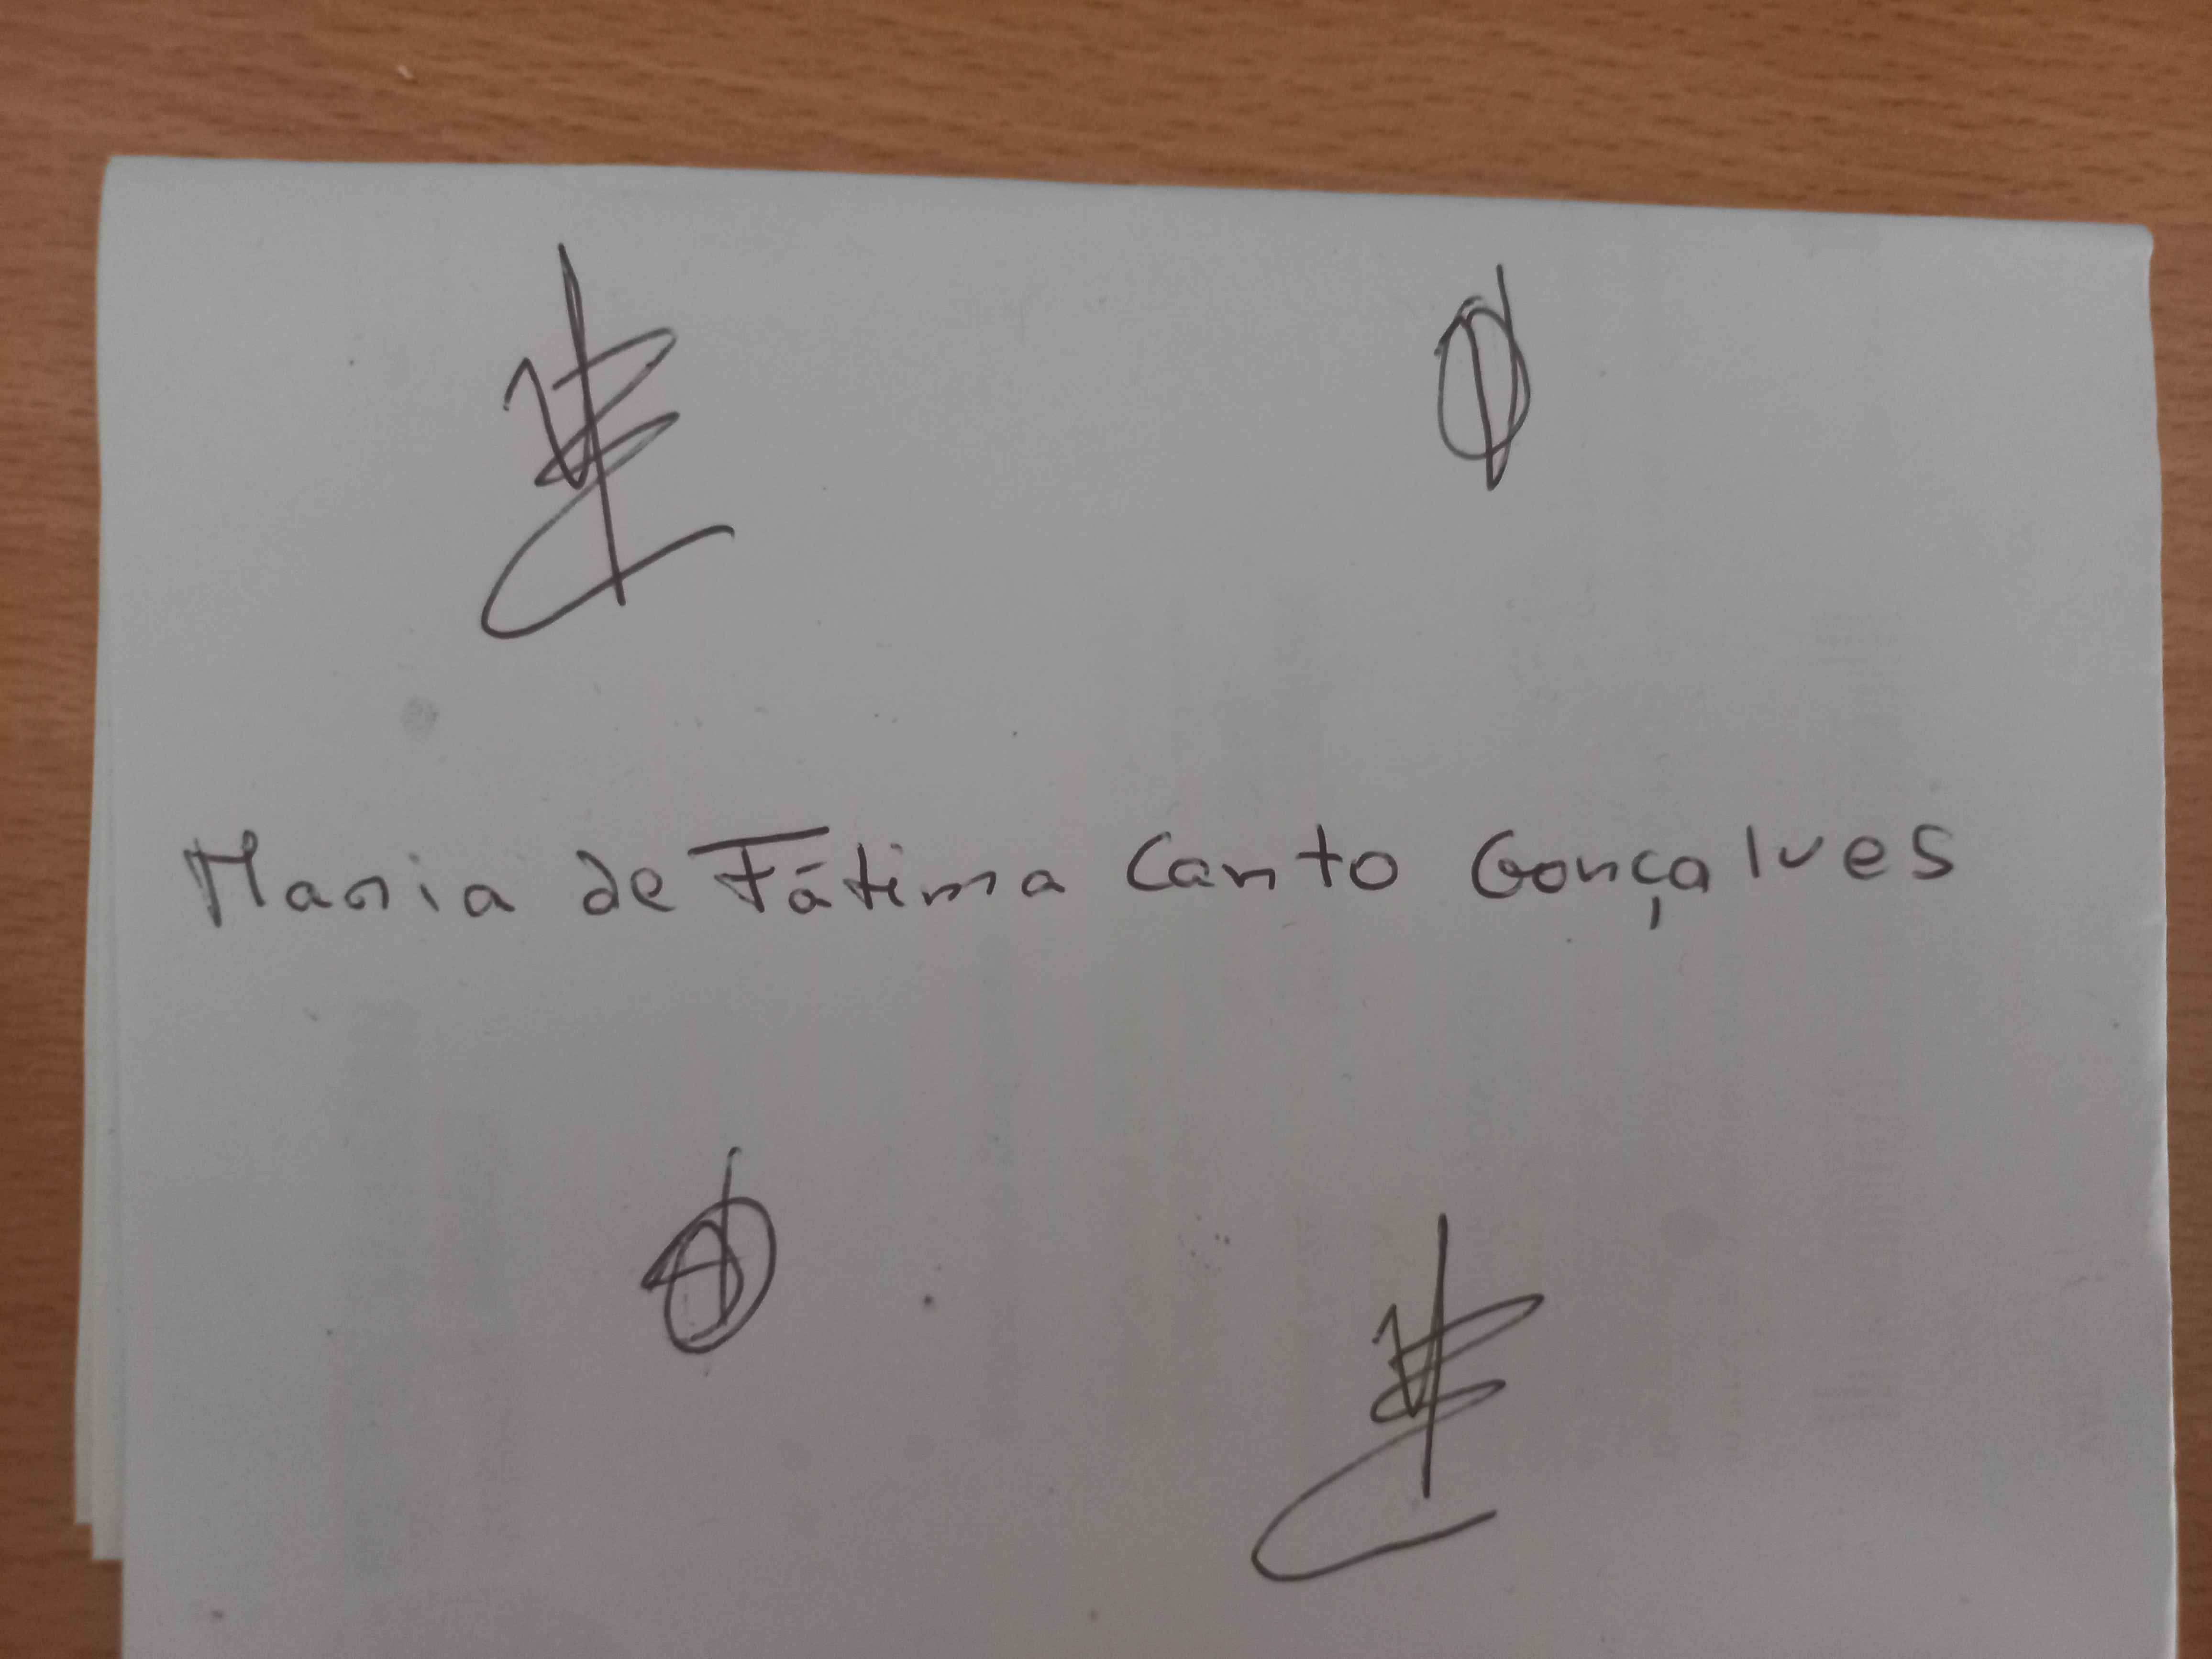 Maria de Fátima Canto Gonçalves